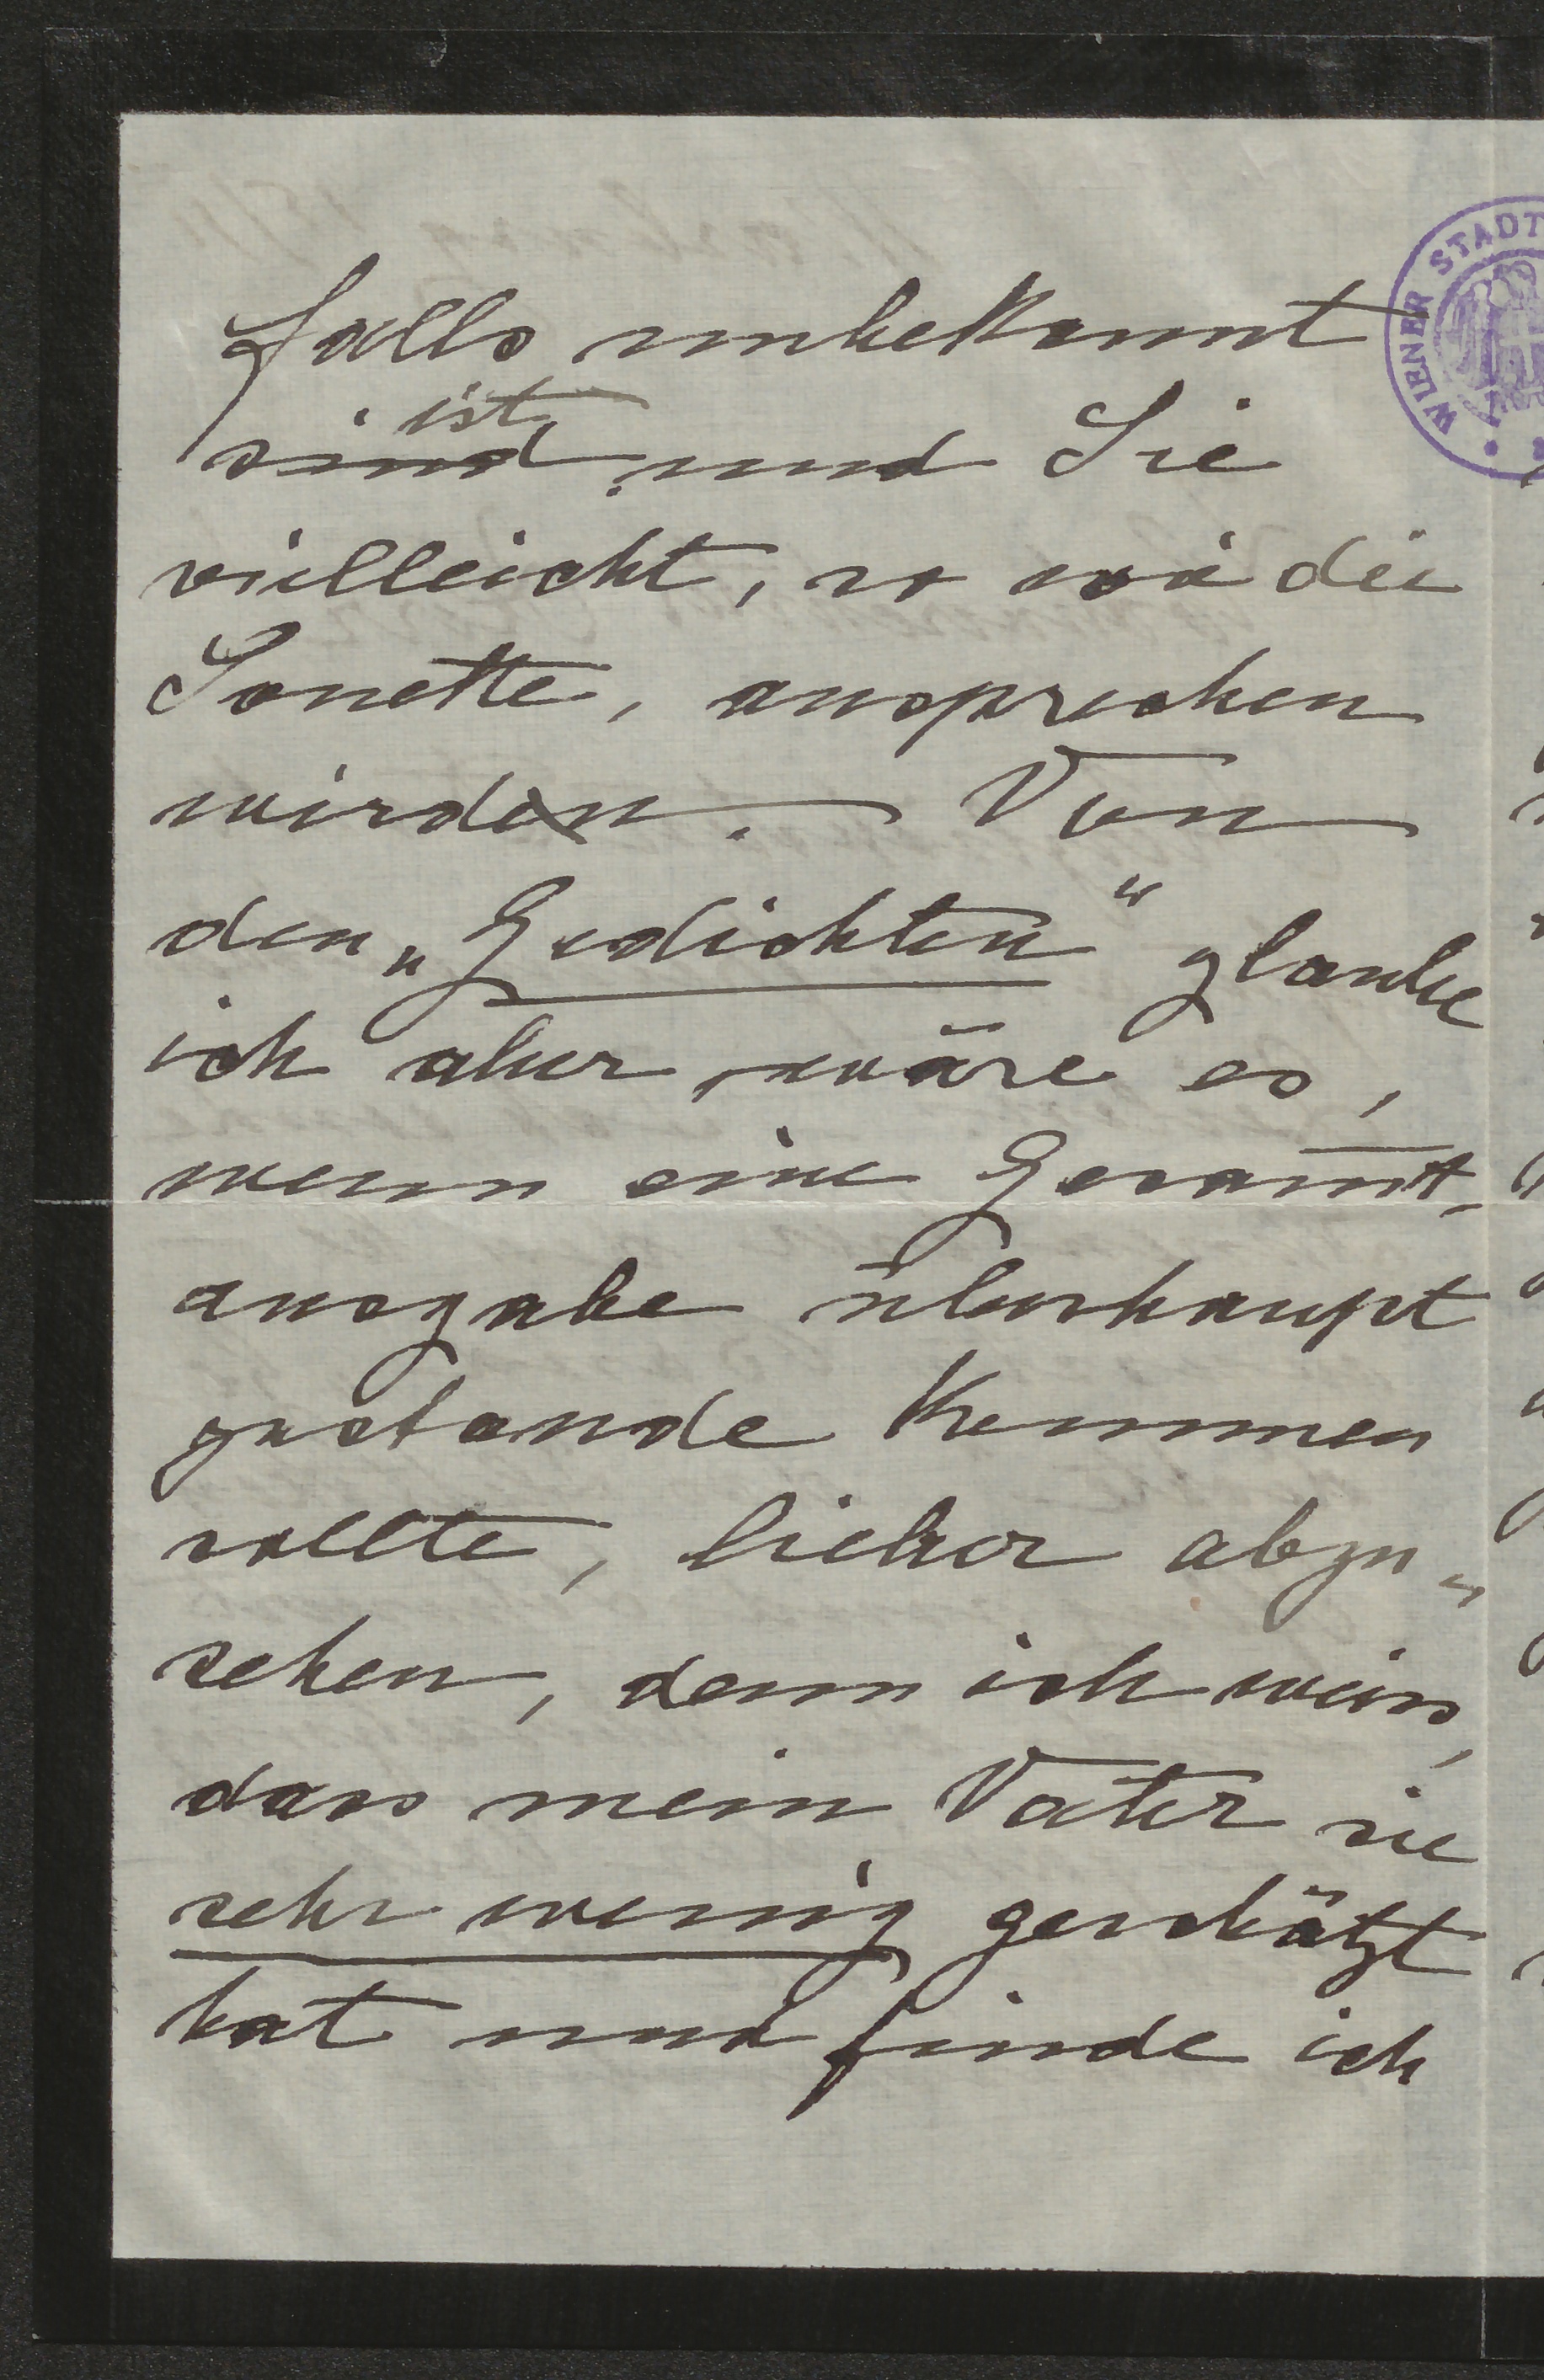 falls unbekannt
sind ist und Sie
vielleicht, so wie die
Sonette, ansprechen
wirden. Von
den „Gedichten“ glaube
ich aber, wäre es,
wenn eine Gesammt-
ausgabe überhaupt
zustande kommen
sollte, lieber abzu„
sehen, denn ich weiss,
dass mein Vater sie
sehr wenig geschätzt
hat und finde ich
WIENER STADT